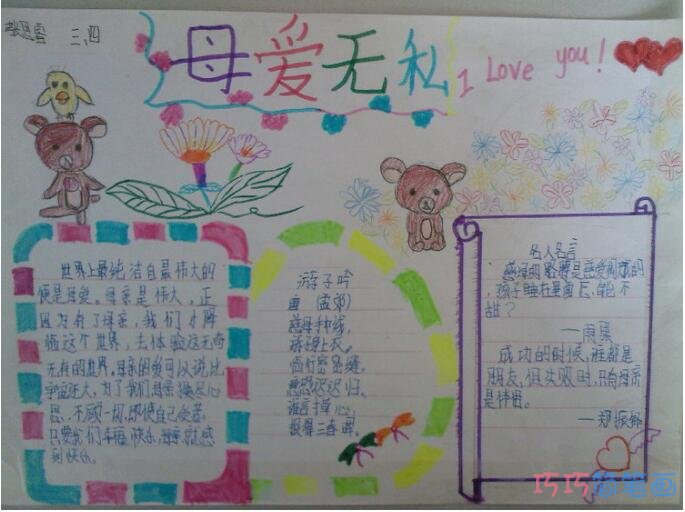 三、四
母爱无私
I Love you!
世界上最纯洁自最伟大的
便是母爱。母亲是伟大,正
因为有了母亲,我们才降
临这个世界,去体验这无奇
无有的世界,母亲的爱可以说比
宇宙还大,为了我们母亲操尽心
思,不顾一切,即使自己受苦
只要我们幸福快乐,母亲就感
到快乐。
游子吟
唐(孟郊)
慈母手中线,
游子身上衣。
临行密密缝,
意恐迟迟归。
谁言寸草心,
报得三春晖。
名人名言
慈母的胳膊是慈爱构成的
,孩子睡在里面怎能不
甜?
——雨果
成功的时候,谁都是
朋友,但失败时,只有母亲
是伴侣。
——郑振铎
巧巧简笔画